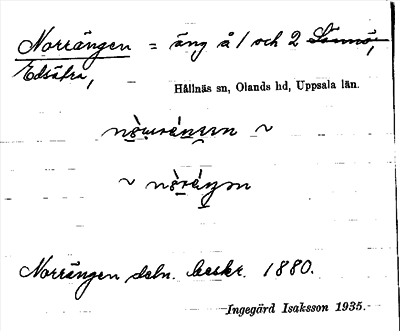 Norrängen = äng å 1 och 2 Sånnö,
Edsätra,
Hållnäs sn, Olands hd, Uppsala län.
~
~
Norrängen dels. beskr. 1880.
Ingegärd Isaksson 1935.